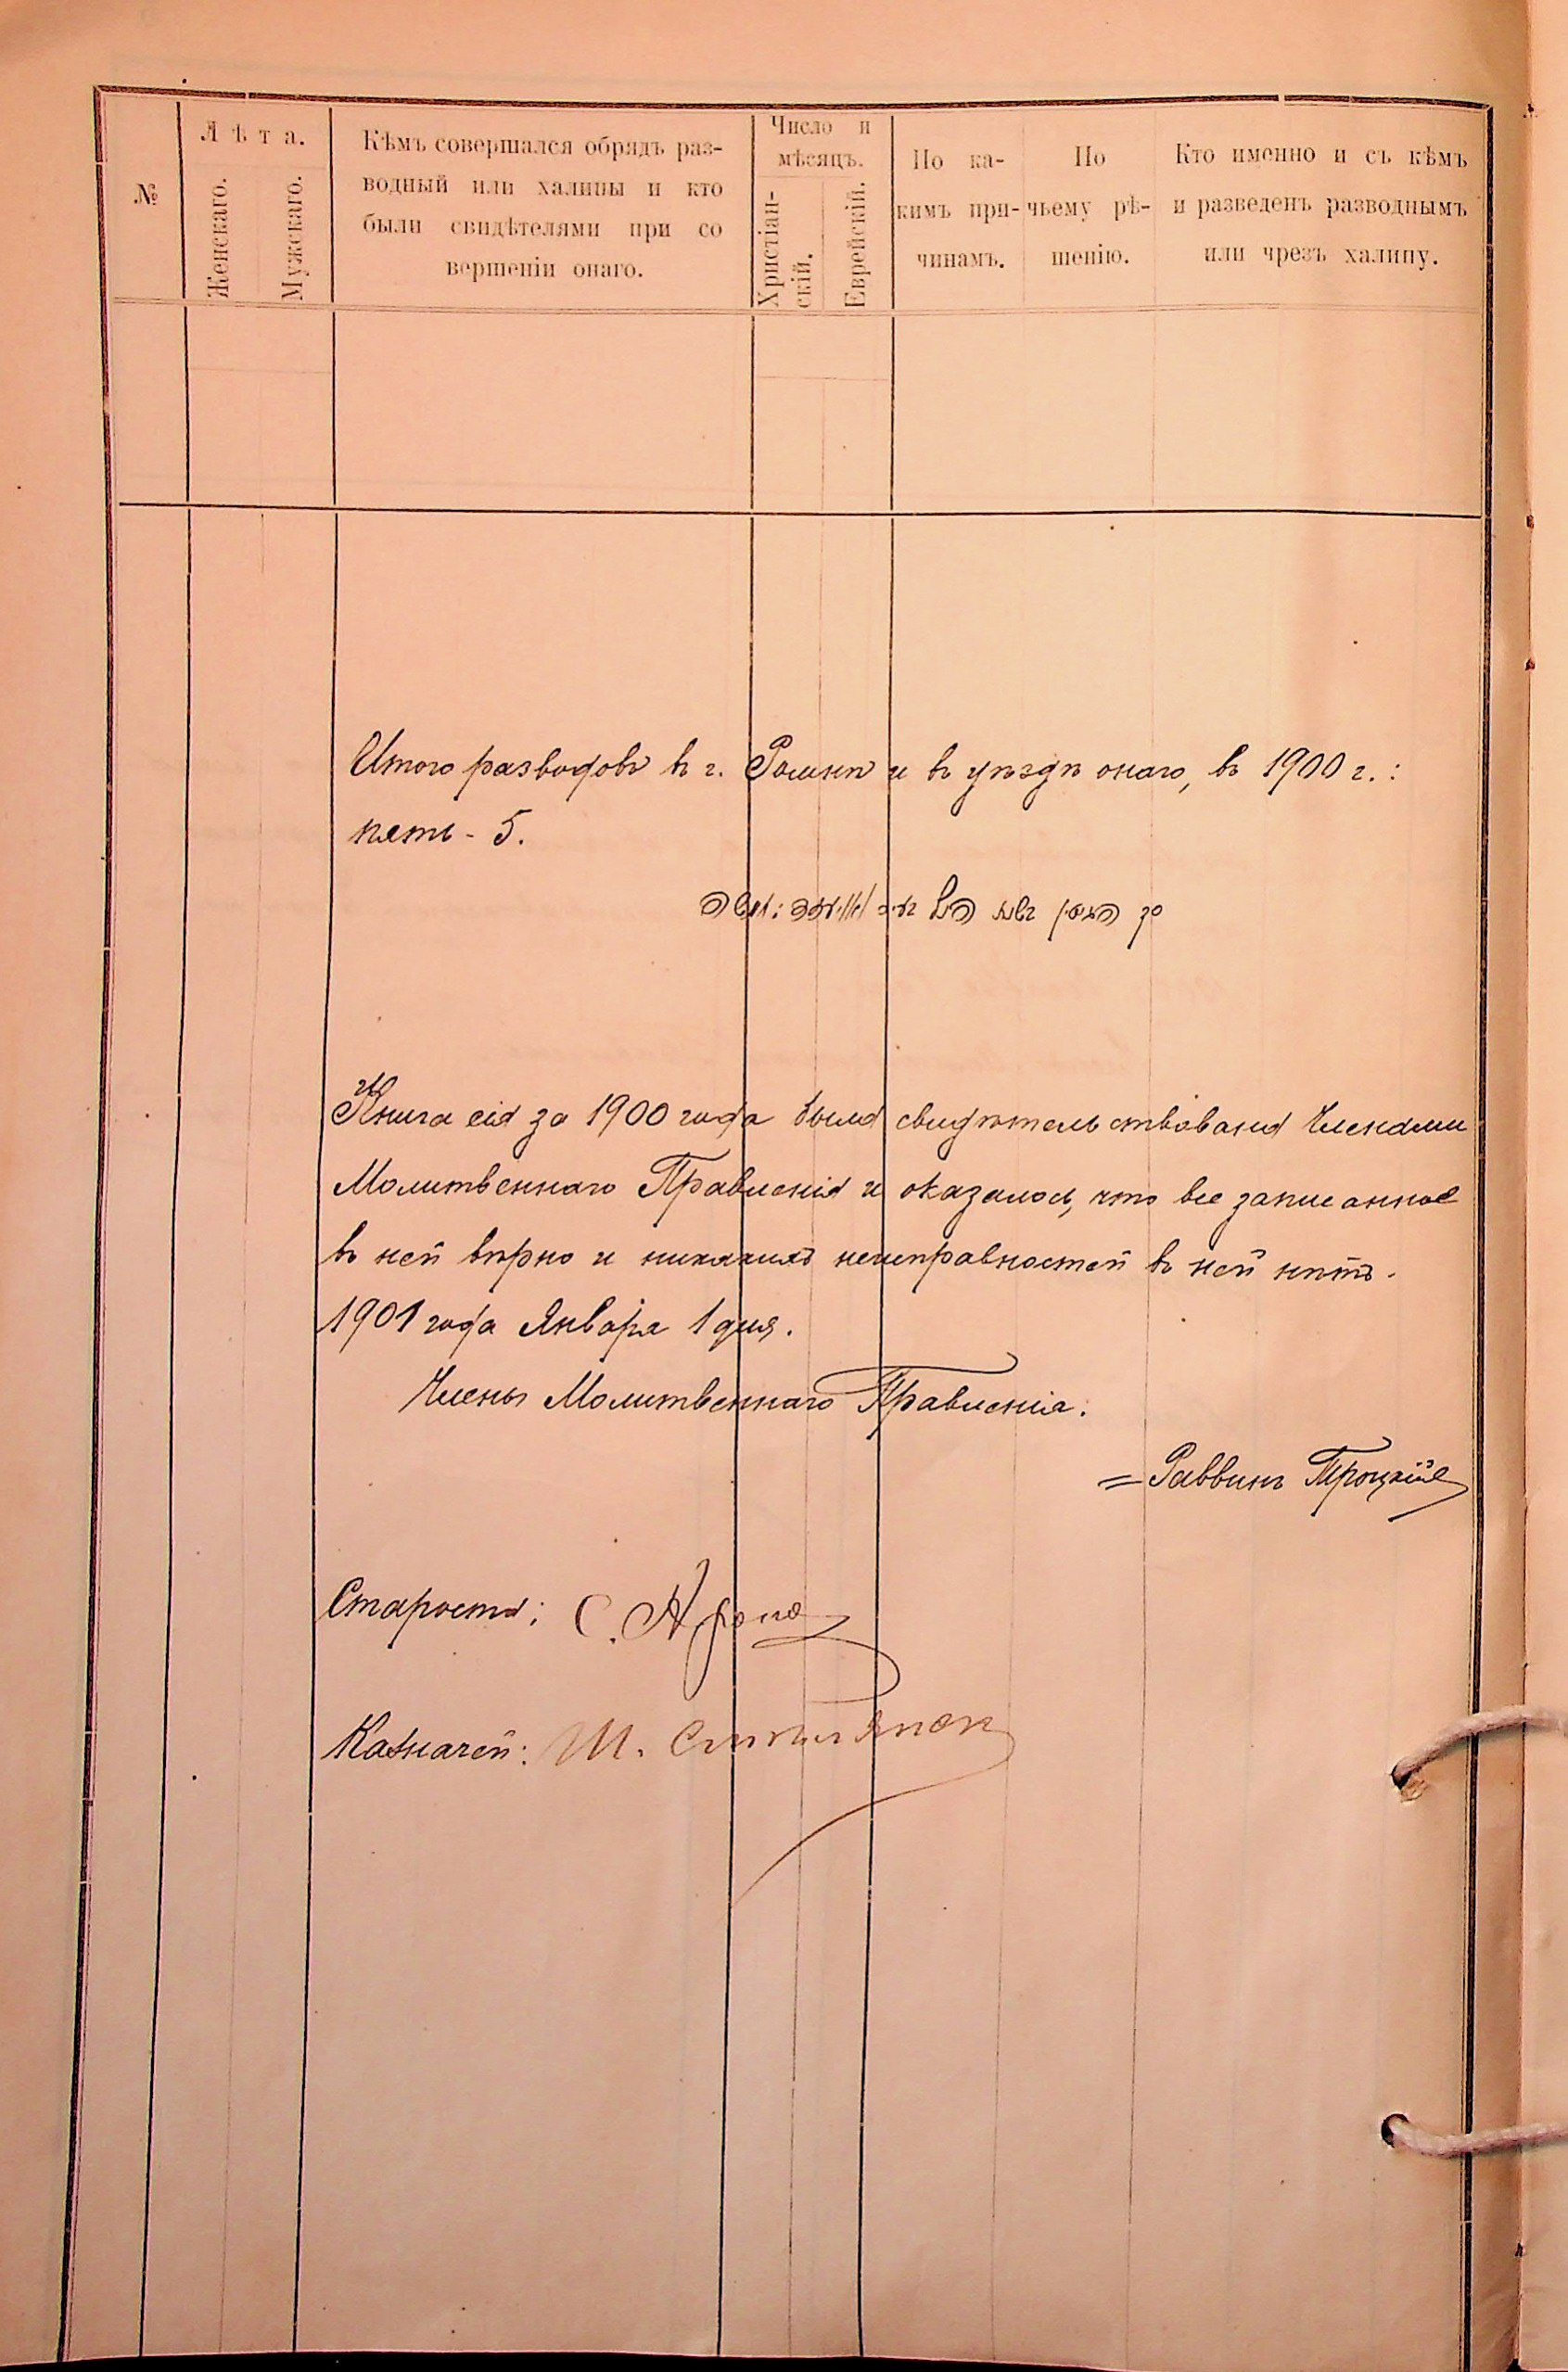 №
Лѣта.
Женскаго.
Мужскаго.
Кѣмъ совершался обрядъ раз-
водный или халицы и кто
были свидѣтелями при со
вершеніи онаго.
Число и
мѣсяцъ.
Христіан-
скій.
Еврейскій.
По ка-
кимъ при-
чинамъ.
По
чьему рѣ-
шенію.
Кто именно и съ кѣмъ
и разведенъ разводнымъ
или чрезъ халицу.
Итого разводовъ въ г. Ромнѣ и въ уѣздѣ онаго, въ 1900 г.:
пять - 5.
Книга сія за 1900 года была свидѣтельствована Членами
Молитвеннаго Правленія и оказалось, что все записанное
въ ней вѣрно и никакихъ неисправностей въ ней нѣтъ.
1901 года Января 1 дня.
Члены Молитвеннаго Правленія.
= Раввинъ Троцкій
Староста: С.
Казначей: Ш.